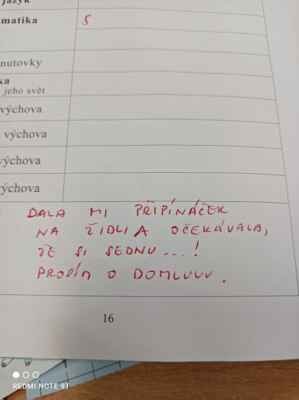 jazyk
matika 5
nutovky
ka
jeho svět
výchova
výchova
výchova
výchova
DALA MI PŘIPÍNÁČEK
NA ŽIDLI A OČEKÁVALA,
ŽE SI SEDNU...!
PROSÍM O DOMLUVU.
16
REDMI NOTE 9T